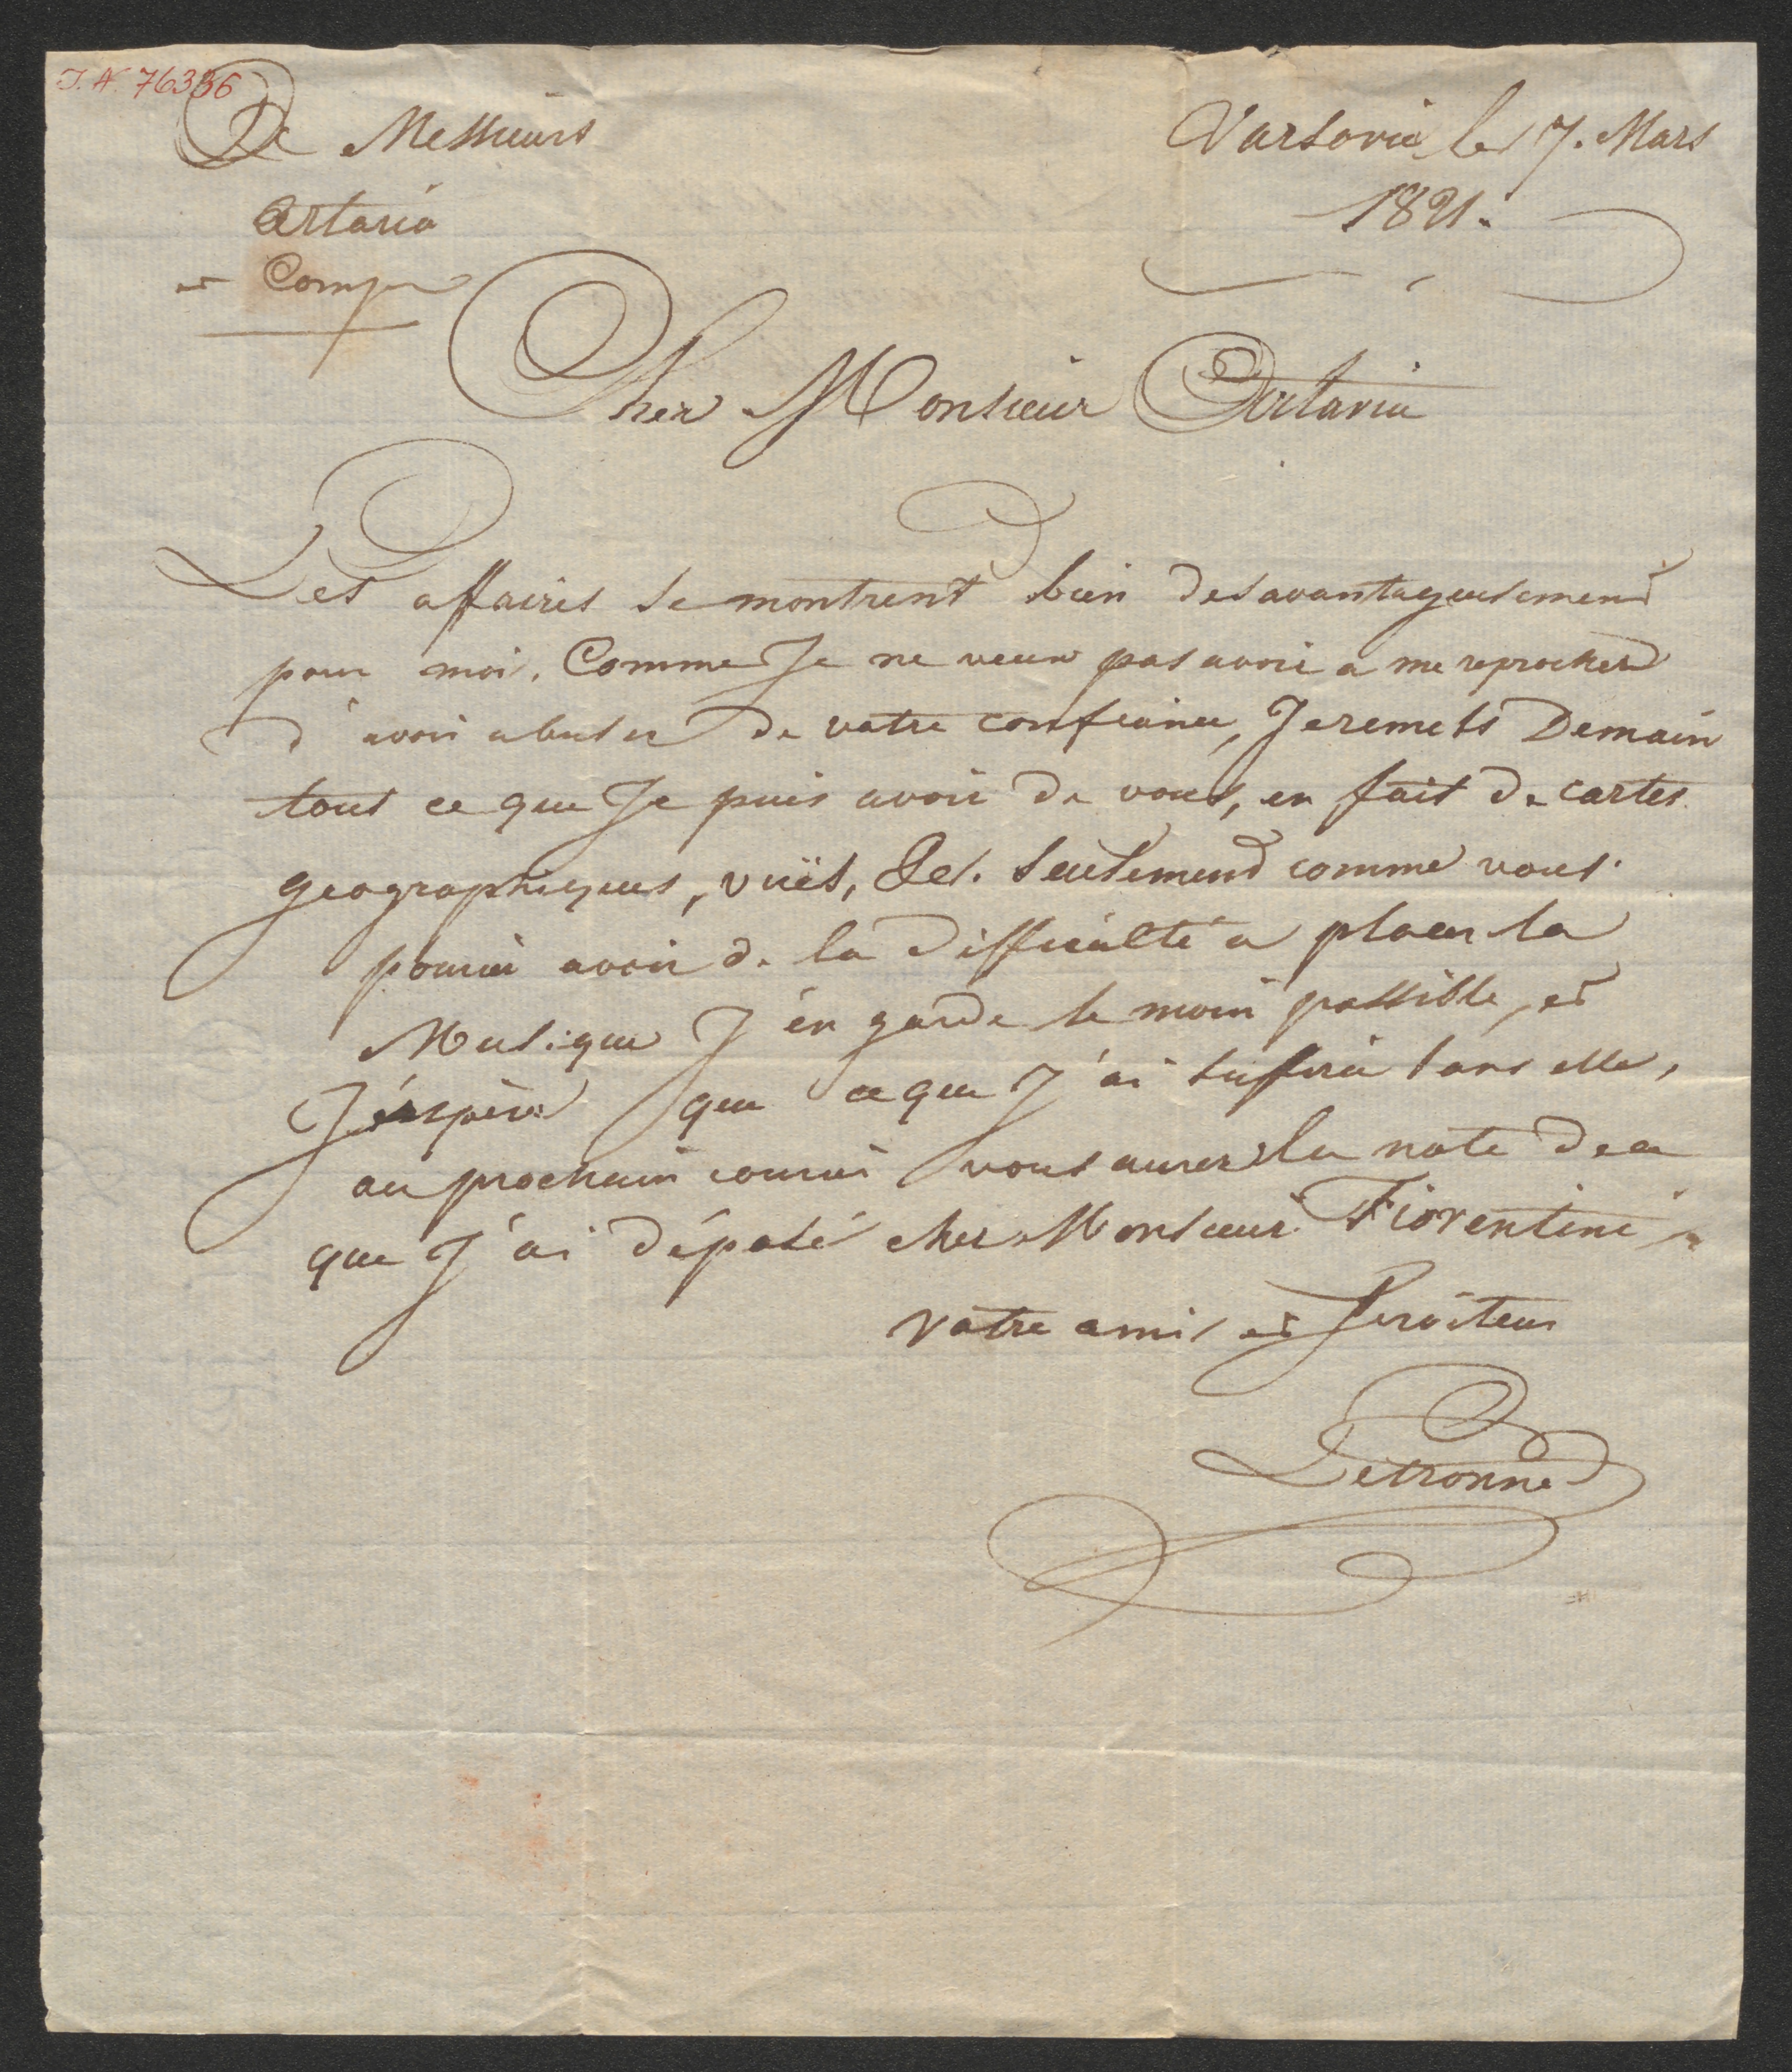 I. N. 76336
De Messieurs
Artaria
et Comp
Varsovie le 7. Mars
1821.
Cher Monsieur Artaria
Les affaires se montrent bien desavantageusement
pour moi. Comme Je ne veux pas avoir a me reprocher
d'avoir abuser de votre confiance, Je remets Demain
tout ce que Je puis avoir de vous, en fait de cartes
geographiques, vuës, &c. Seulement comme vous
pouriéz avoir de la difficulté a placer la
Musique J'én garde le moin possible, et
J'éspère que ce que J'ai suffira sans elle,
au prochain courié vous aurez la note de ce
que J'ai déposé chez Monsieur Fiorentini
Votre amis et Serviteur
Letronne